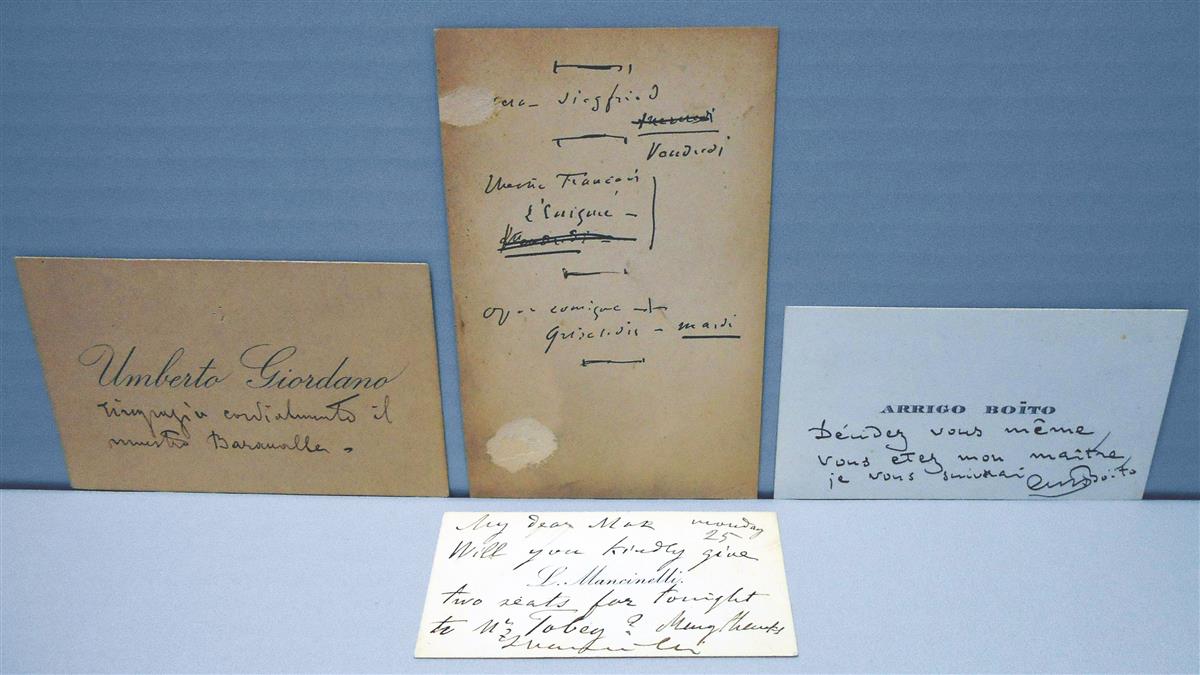 Umberto Giordano
ringrazia cordialmente il
maestro Baravalle.
Siegfried
Vendredi
Théâtre Français
L'Enigme —
opera comique
Griselidis — mardi
ARRIGO BOÏTO
Décidez vous même,
vous etez mon maître,
je vous suivrai Boito
My dear Mak monday
25
Will you kindly give
L. Mancinelli.
two seats for tonight
to Mr Tobey? Many thanks
LMancinelli